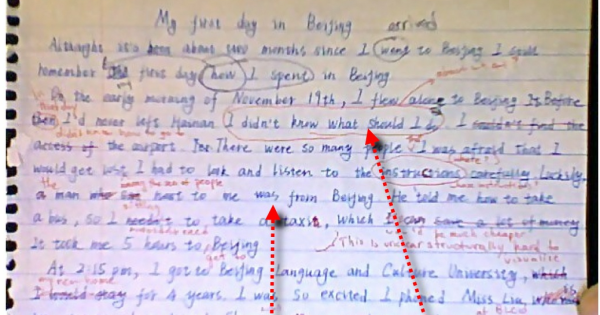 My first day in Beijing
arrived
Although it's been about two months since I went to Beijing I still
remember the first day how I spent in Beijing
On the early morning of November 19th, I flew alone to Beijing Before
then I'd never left Hainan I didn't know what should I do I couldn't find the
didn't know how to go
access of the airport. There were so many people I was afraid that I
would get lost I had to look and listen to the instructions carefully. Luckily
the
a man who sat next to me was from Beijing He told me how to take
a bus, so I needn't to take a taxi, which can save a lot of money
much cheaper
It took me 5 hours to Beijing
This is unclear structurally hard to visualise
get to
At 2:15 pm, I got to Beijing Language and Culture University, which
my new home
I would stay for 4 years. I was so excited I phoned Miss Liu,
at BLCU